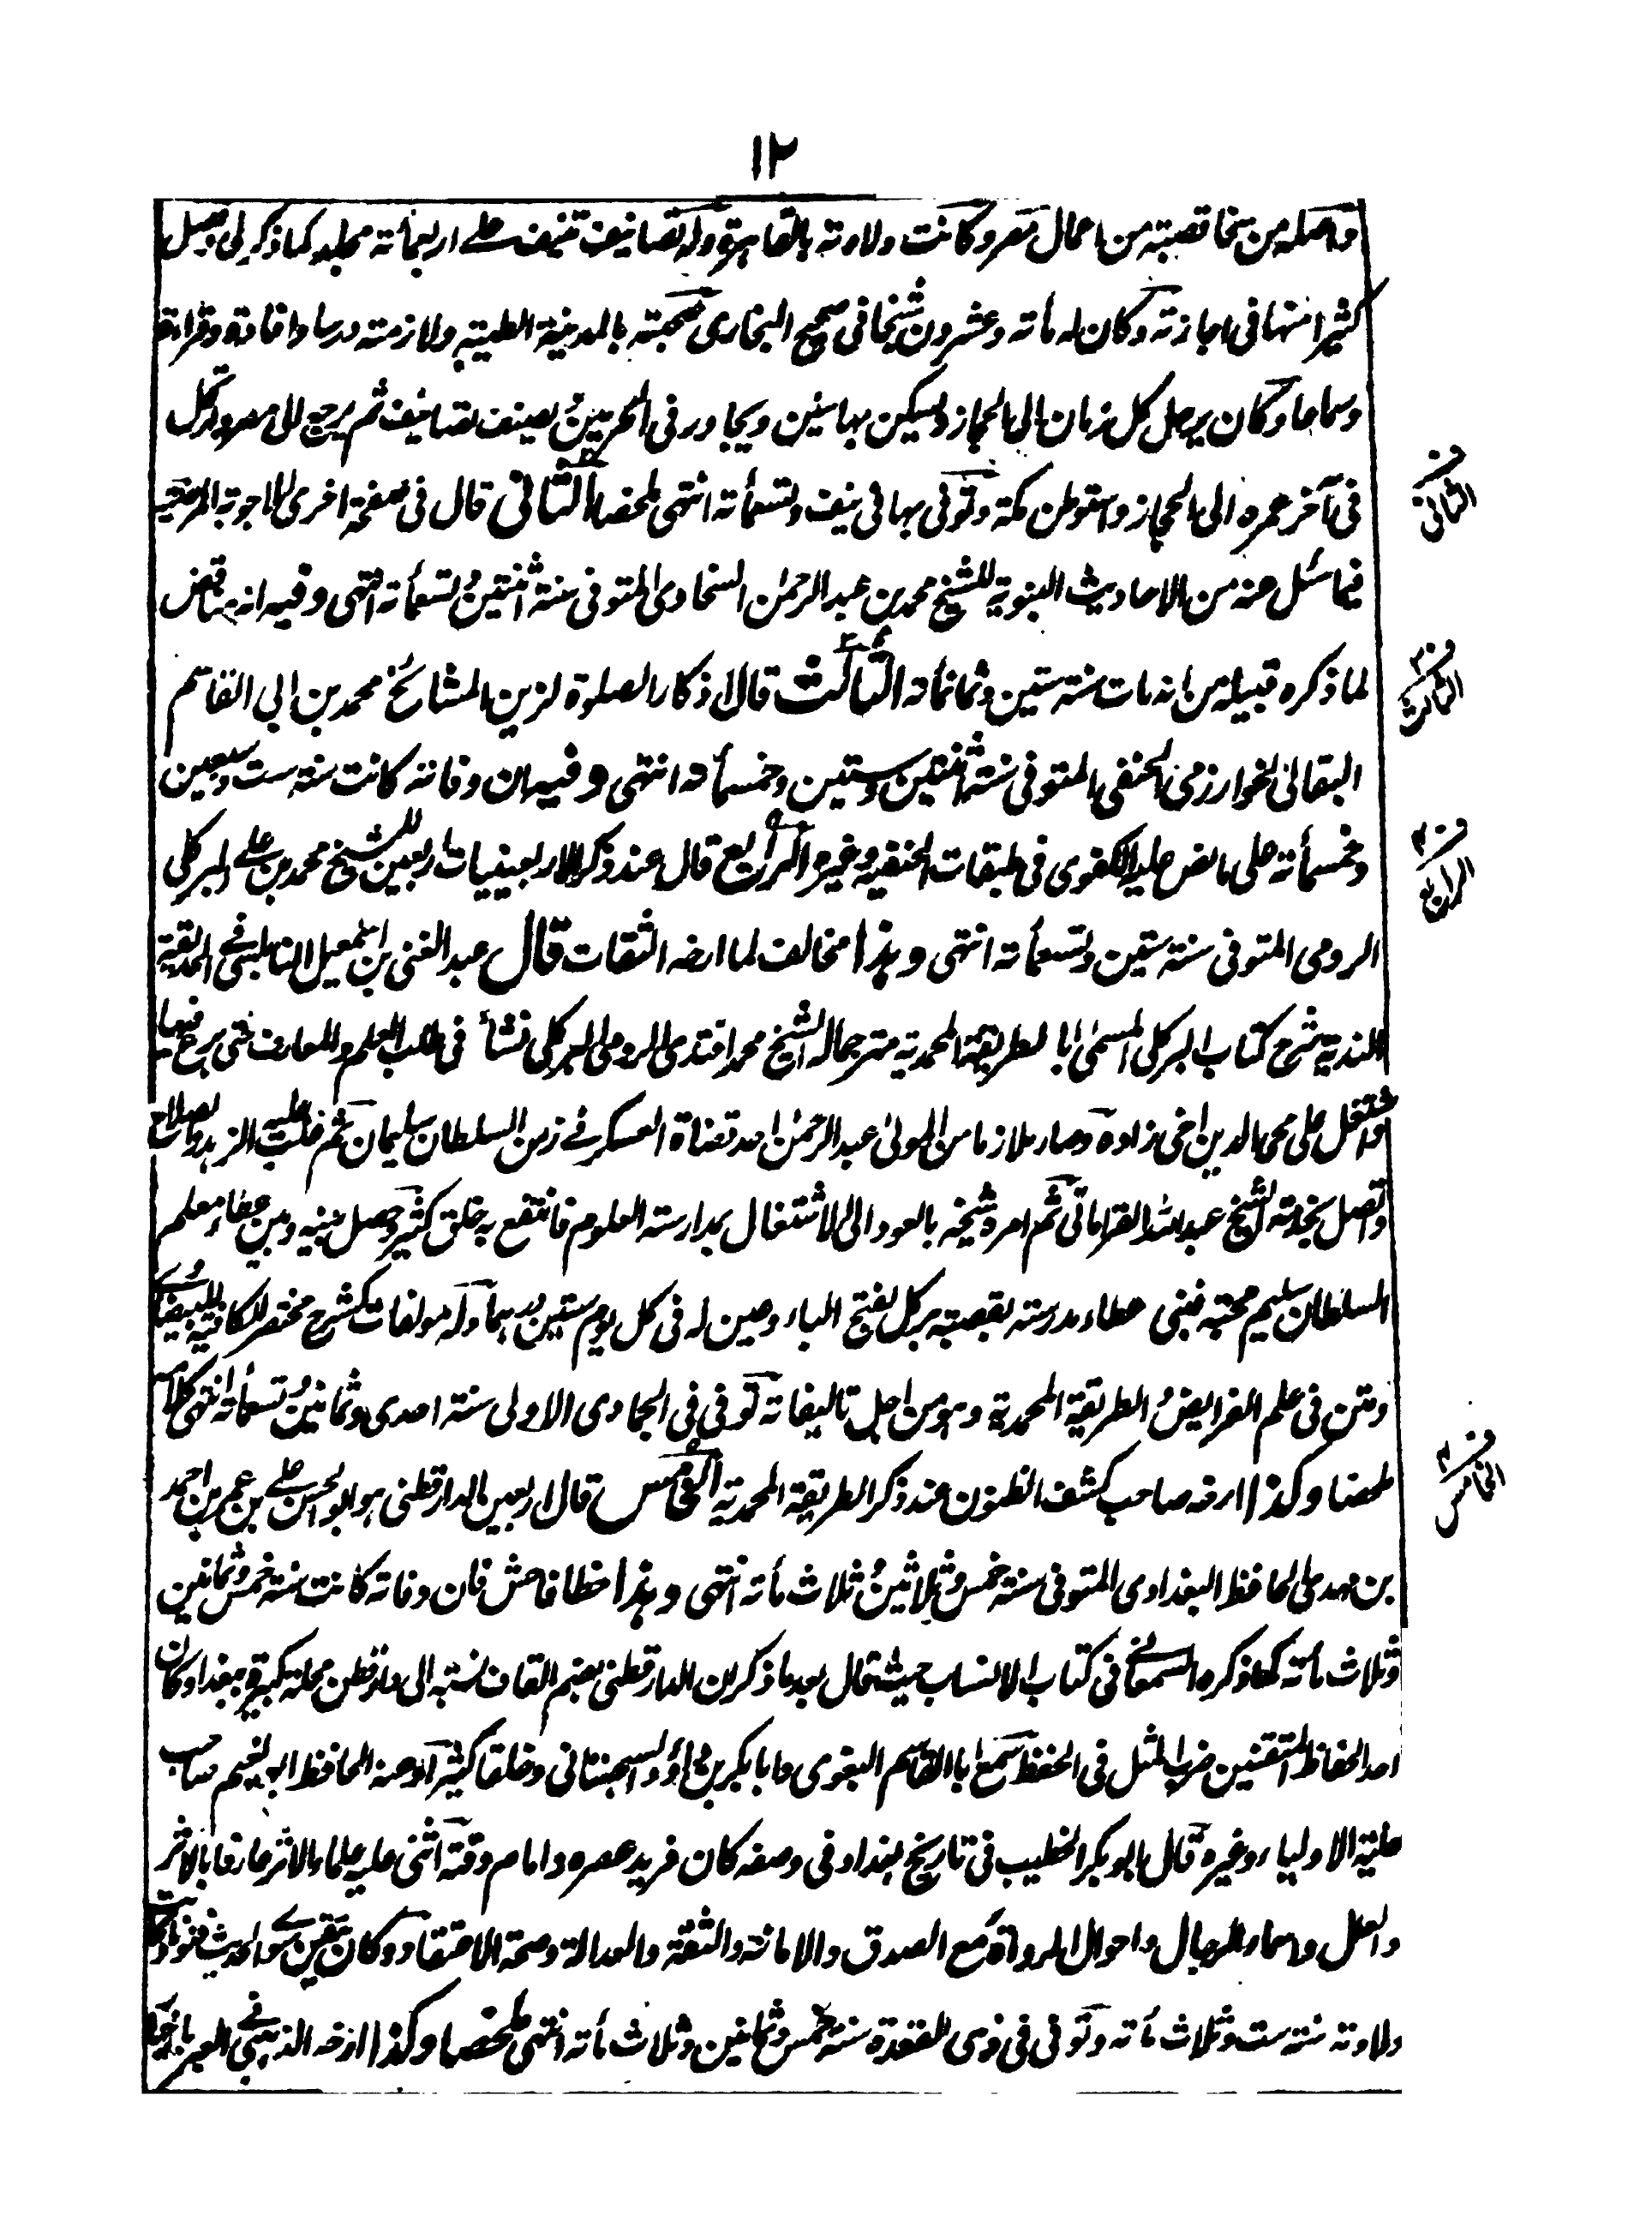 ١٢
واصله من سخا قصبته من اعمال مصر وكانت ولادته بالقاهرة وله تصانيف تنيف على اربعمأته مجلد كما ذكر لى وفصل
كثيرا منها فى اجازته وكان له مأته وعشرون شيخا فى صحيح البخارى صحبته بالمدينة الطيبة ولازمته درسا وافادة وقراءة
وسماعا وكان يرحل كل زمان الى الحجاز ويسكن بها سنين ويجاور فى الحرمين ويصنف تصانيف ثم يرجع الى مصر وارتحل
فى آخر عمره الى الحجاز واستوطن مكة وتوفى بها فى نيف وتسعمأته انتهى ملخصا الثانى قال فى صفحة اخرى الاجوبة المرضية
الثانى
فيما سئل عنه من الاحاديث النبوية للشيخ محمد بن عبد الرحمن السخاوى المتوفى سنة اثنتين وتسعمأته انتهى وفيه انه مناقض
لما ذكره قبيله من انه مات سنة ستين وثمانمأته الثالث قال اذكار الصلوة لزين المشائخ محمد بن ابى القاسم
الثالث
البقالى الخوارزمى الحنفى المتوفى سنة اثنتين وستين وخمسمأته انتهى وفيه ان وفاته كانت سنة ست وسبعين
وخمسمأته على ما نص عليه الكفوى فى طبقات الحنفيه وغيره الرابع قال عند ذكر الاربعينيات اربعين للشيخ محمد بن على البركلى
الرابع
الرومى المتوفى سنة ستين وتسعمأته انتهى وهذا مخالف لما ارخه الثقات قال عبد الغنى بن اسمعيل النابلسى فى الحديقة
الندية شرح كتاب البركلى المسمى بالطريقة المحمدية مترجما له الشيخ محمد افندى الرومى البركلى نشأ فى طلب العلم والمعارف حتى برع فيها
واشتغل على محى الدين اخى زاده وصار ملازما من المولى عبد الرحمن احد قضاة العسكر فى زمن السلطان سليمان ثم غلب عليه الزهد والصلاح
واتصل بخدمته الشيخ عبد الله القرامانى ثم امره شيخه بالعود الى الاشتغال بمدارسة العلوم فانتفع به خلق كثير وحصل بينه وبين عطاء معلم
السلطان سليم محبة فبنى عطاء مدرسته بقصبة بركل بفتح الباء وعين له فى كل يوم ستين درهما وله مولفات كشرح مختصر الكافيه للبيضاوى
ومتن فى علم الفرايض والطريقة المحمدية وهو من اجل تاليفاته توفى فى الجمادى الاولى سنة احدى وثمانين وتسعمأته انتهى كلامه
ملخصا وكذا ارخه صاحب كشف الظنون عند ذكر الطريقة المحمدية الخامس قال اربعين الدارقطنى هو ابو الحسن على بن عمر بن احمد
الخامس
بن مهدى الحافظ البغدادى المتوفى سنة خمس وثلاثين وثلاث مأته انتهى وهذا خطا فاحش فان وفاته كانت سنة خمس وثمانين
وثلاث مأته كما ذكره السمعانى فى كتاب الانساب حيث قال بعد ما ذكر ان الدارقطنى بضم القاف نسبته الى دارقطن محلة كبيرة ببغداد كان
احد الحفاظ المتقنين ضرب المثل فى الحفظ سمع ابا القاسم البغوى وابا بكر بن داؤد السجستانى وخلقا كثيرا وعنه الحافظ ابو نعيم صاحب
حلية الاولياء وغيره قال ابو بكر الخطيب فى تاريخ بغداد فى وصفه كان فريد عصره وامام وقته اثنى عليه علماء الاثر عارفا بالاثر
والعلل واسماء الرجال واحوال الرواة مع الصدق والامانة والثقة والعدالة وصحة الاعتقاد وكان يتقن سوى الحديث فنونا وكانت
ولادته سنة ست وثلاث مأته وتوفى فى ذى القعدة سنة خمس وثمانين وثلاث مأته انتهى ملخصا وكذا ارخه الذهبى فى العبر باخبار